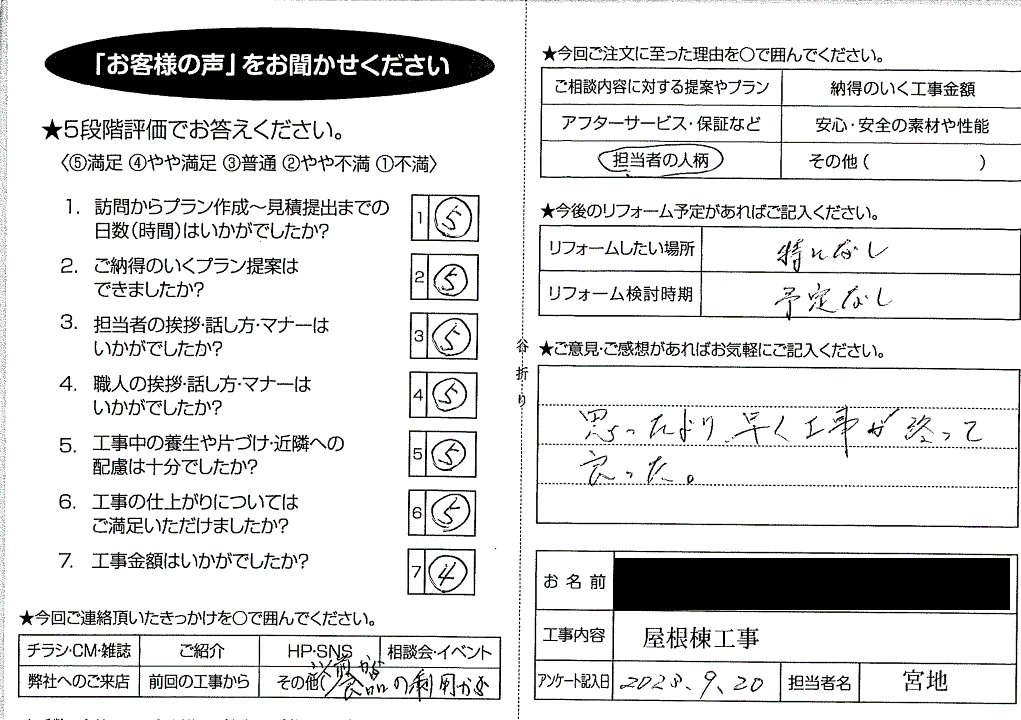 「お客様の声」をお聞かせください
★5段階評価でお答えください。
〈⑤満足 ④やや満足 ③普通 ②やや不満 ①不満〉
1. 訪問からプラン作成～見積提出までの
日数(時間)はいかがでしたか?
1 ⑤
2. ご納得のいくプラン提案は
できましたか?
2 ⑤
3. 担当者の挨拶・話し方・マナーは
いかがでしたか?
3 ⑤
4. 職人の挨拶・話し方・マナーは
いかがでしたか?
4 ⑤
5. 工事中の養生や片づけ・近隣への
配慮は十分でしたか?
5 ⑤
6. 工事の仕上がりについては
ご満足いただけましたか?
6 ⑤
7. 工事金額はいかがでしたか?
7 ④
★今回ご連絡頂いたきっかけを○で囲んでください。
チラシ・CM・雑誌 ご紹介 HP・SNS 相談会・イベント
弊社へのご来店 前回の工事から その他( の利用から
谷折り
★今回ご注文に至った理由を○で囲んでください。
ご相談内容に対する提案やプラン 納得のいく工事金額
アフターサービス・保証など 安心・安全の素材や性能
担当者の人柄 その他( )
★今後のリフォーム予定があればご記入ください。
リフォームしたい場所 特になし
リフォーム検討時期 予定なし
★ご意見・ご感想があればお気軽にご記入ください。
思ったより早く工事が終って
良った。
お名前
工事内容 屋根棟工事
アンケート記入日 2023.9.20 担当者名 宮地